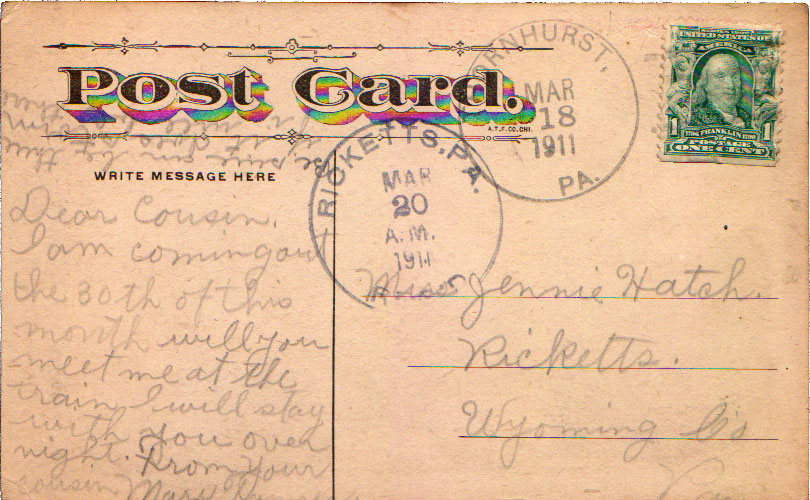 Post Card.
A.T.F.CO.CHI.
WRITE MESSAGE HERE
Dear Cousin,
I am coming out
the 30th of this
month will you
meet me at the
train I will stay
with you over
night. From your
cousin Mary
RICKETTS, PA.
MAR
20
A.M.
1911
ORNHURST,
MAR
18
1911
PA.
UNITED STATES OF
AMERICA
1 1706 FRANKLIN 1790 1
POSTAGE
ONE CENT
Miss Jennie Hatch.
Ricketts.
Wyoming Co